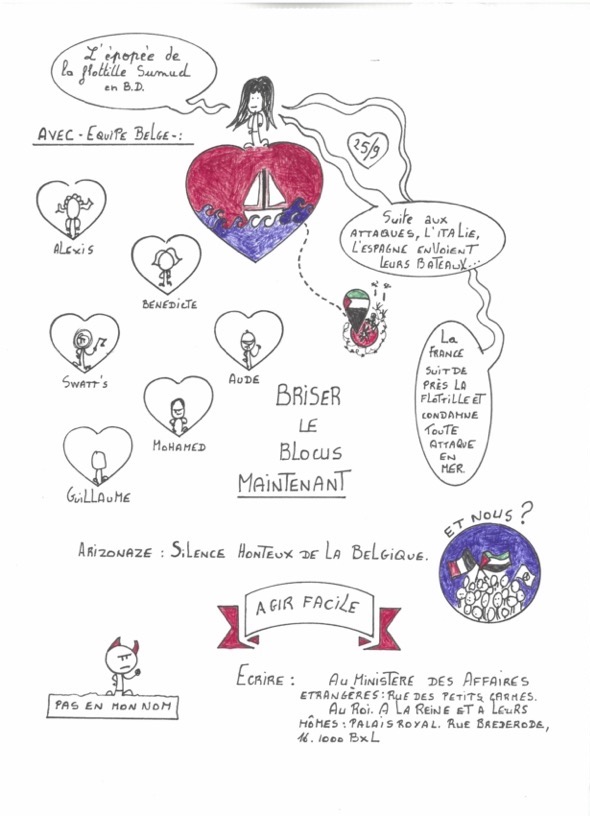 L'épopée de
la flottille Sumud
en B.D.
AVEC - EQUIPE BELGE - :
25/9
ALEXIS
BENEDICTE
SWATT'S
AUDE
MOHAMED
GUILLAUME
SUITE AUX
ATTAQUES, L'ITALIE,
L'ESPAGNE ENVOIENT
LEURS BATEAUX...
LA
FRANCE
SUIT DE
PRÈS LA
FLOTTILLE ET
CONDAMNE
TOUTE
ATTAQUE
EN
MER
BRISER
LE
BLOCUS
MAINTENANT
ET NOUS ?
ARIZONAZE : SILENCE HONTEUX DE LA BELGIQUE.
AGIR FACILE
PAS EN MON NOM
ECRIRE : AU MINISTERE DES AFFAIRES
ETRANGÈRES : RUE DES PETITS CARMES.
AU ROI. A LA REINE ET A LEURS
MÔMES : PALAIS ROYAL. RUE BREDERODE,
16. 1000 BXL